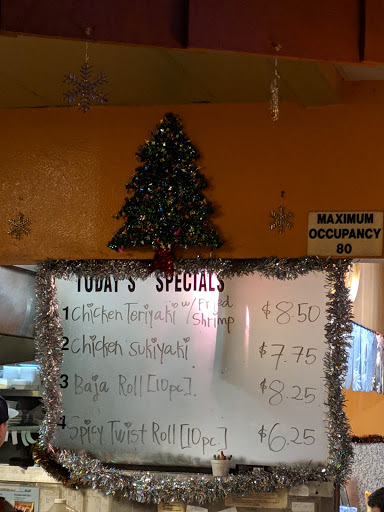 MAXIMUM
OCCUPANCY
80
TODAY'S SPECIALS
1 Chicken Teriyaki w/ Fried Shrimp $8.50
2 Chicken Sukiyaki $7.75
3 Baja Roll [10pc]. $8.25
4 Spicy Twist Roll [10pc.] $6.25